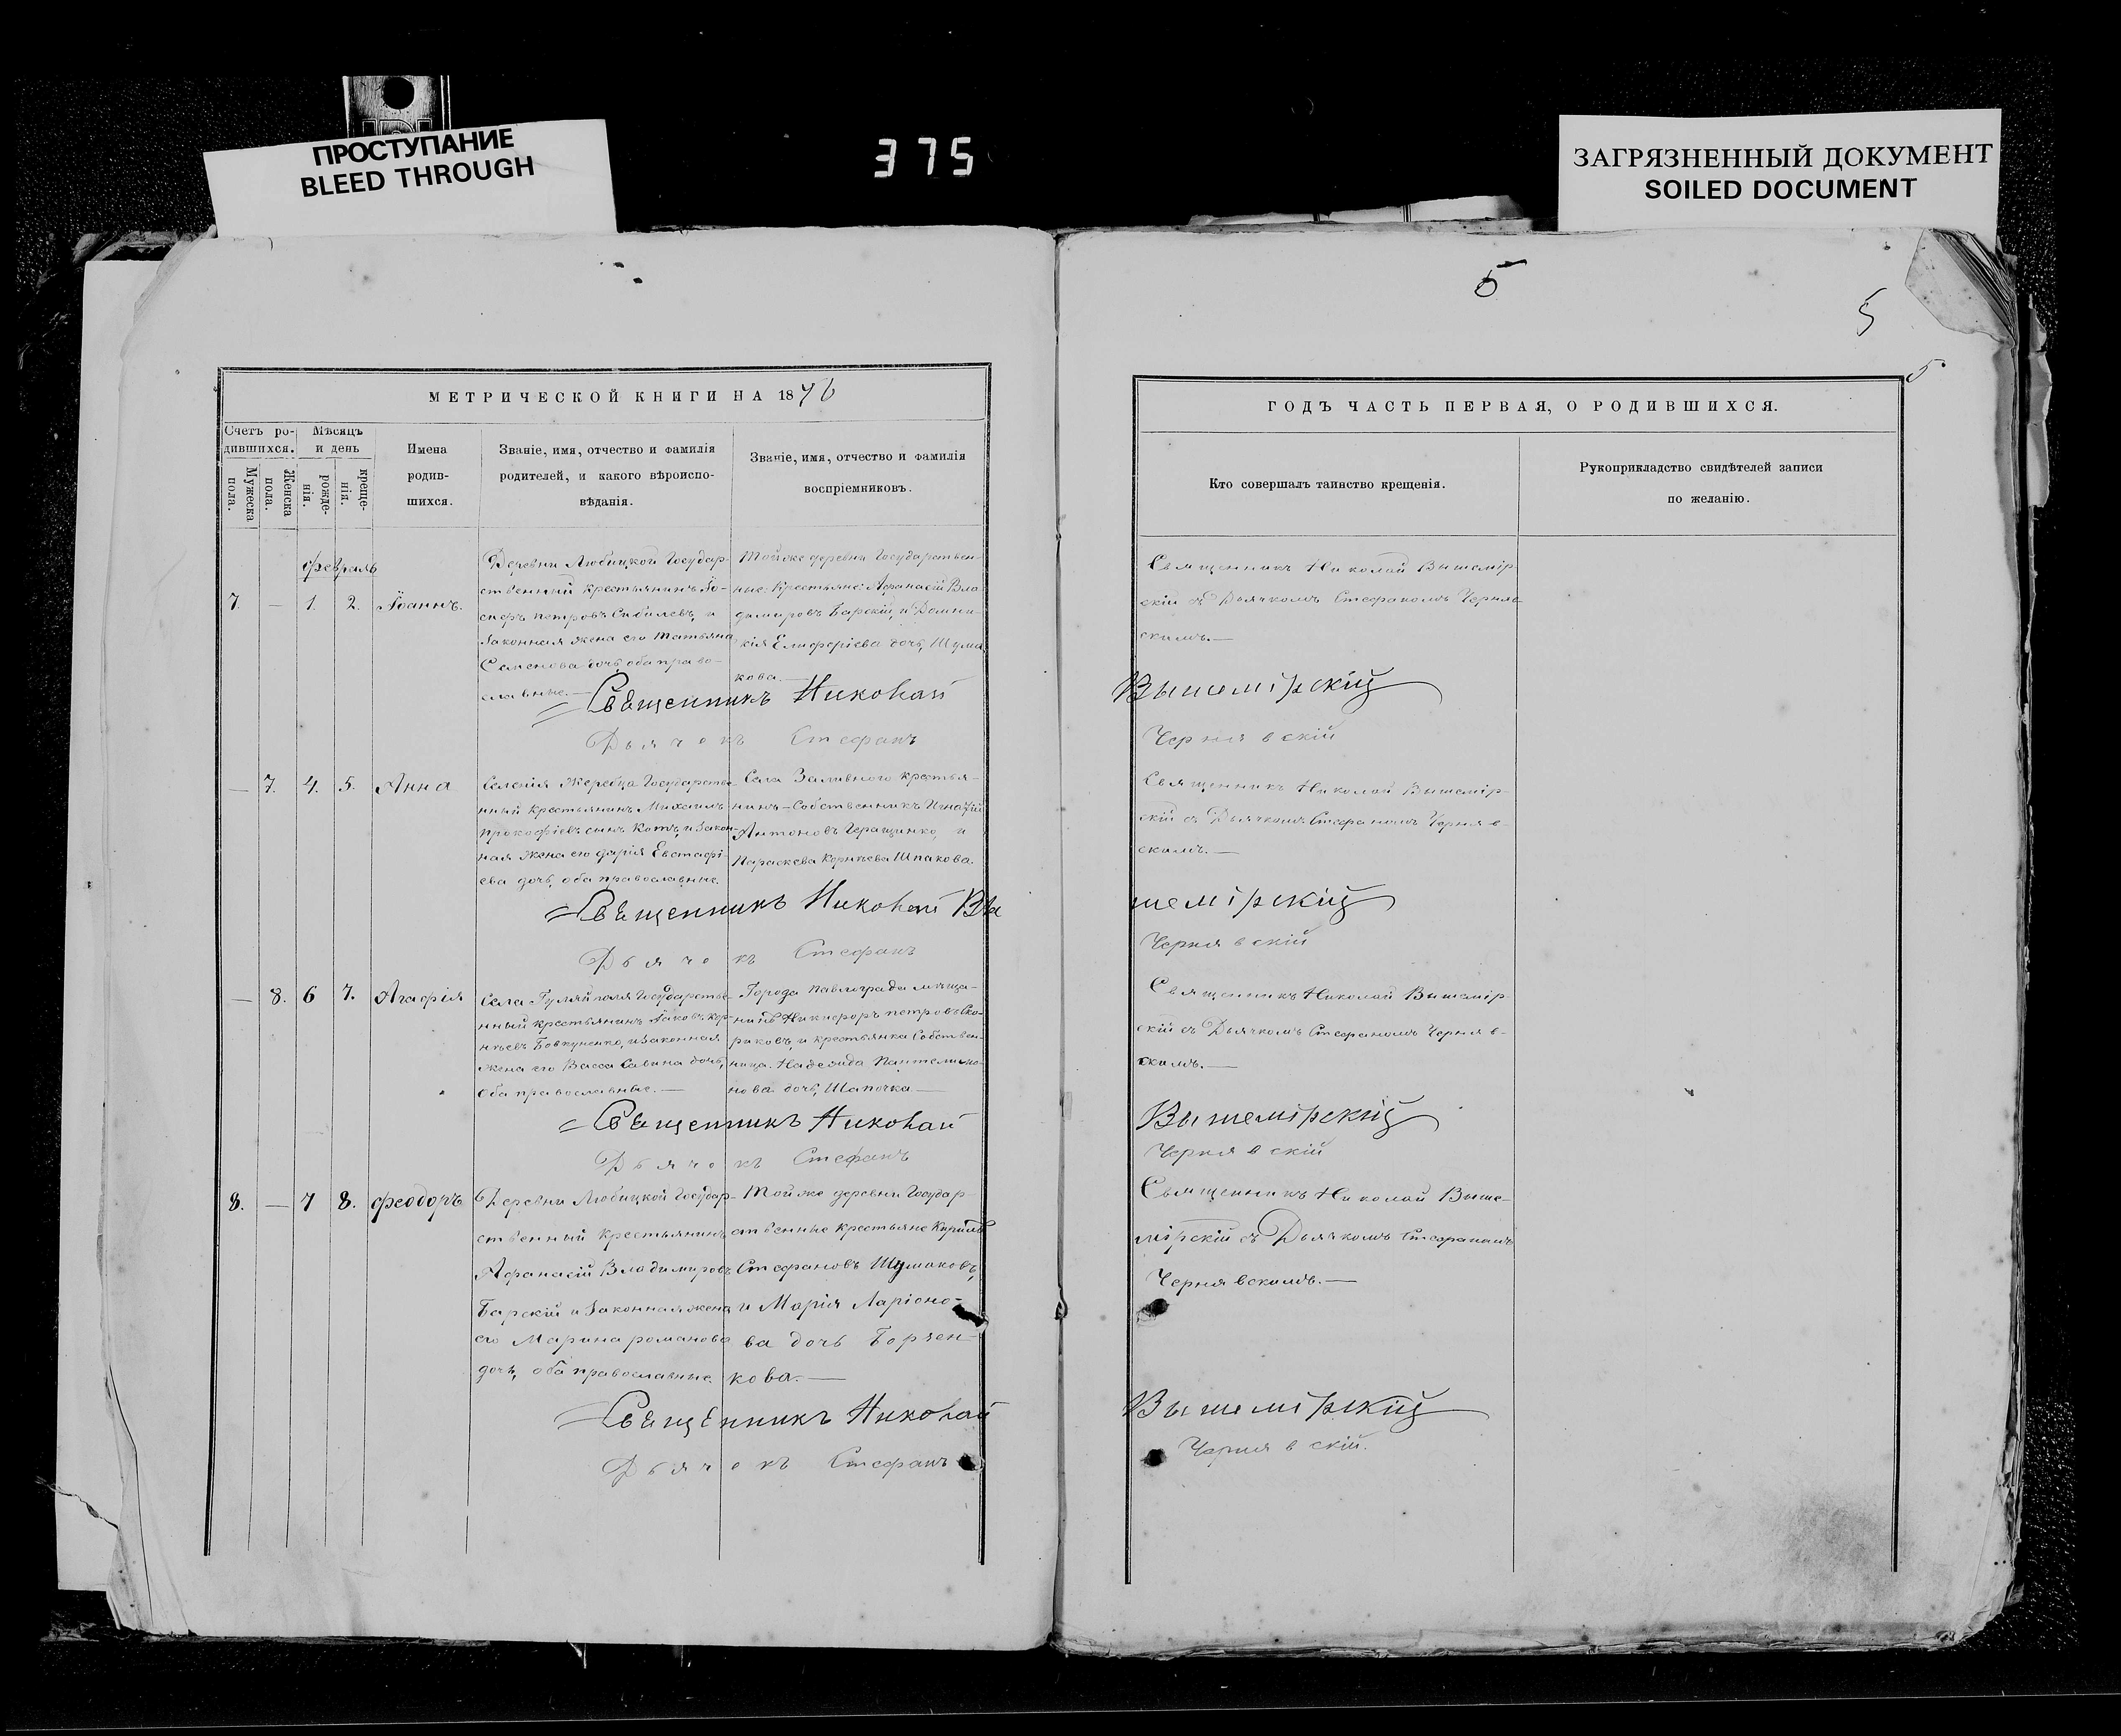 ПРОСТУПАНИЕ
BLEED THROUGH
375
ЗАГРЯЗНЕННЫЙ ДОКУМЕНТ
SOILED DOCUMENT
МЕТРИЧЕСКОЙ КНИГИ НА 1876
Счетъ ро-
дившихся.
Мѣсяцъ
и день
Мужеска
пола.
Женска
пола.
рожде-
нія.
креще-
нія.
Имена
родив-
шихся.
Званіе, имя, отчество и фамилія
родителей, и какого вѣроиспо-
вѣданія.
Званіе, имя, отчество и фамилія
воспріемниковъ.
февраль
7. — 1. 2. Іоаннъ.
Деревни Любицкой Государ-
ственный крестьянинъ Іо-
сифъ петровъ и
законная жена его Татьяна
Семенова дочь, оба право-
славные.—
Тойже деревни Государствен-
ные: Крестьяне: Афанасій Вла-
димировъ Барскій, и Домни-
кія Елифферіева дочь, Шума
кова.—
Священникъ Николай
Дьячокъ Стефанъ
— 7. 4. 5. Анна
Селенія Жеребца Государстве-
нный крестьянинъ Михаилъ
прокофіевъ сынъ Котъ, и закон-
ная жена его дарія Евстафі-
ева дочь, оба православные.
Села Заливного крестья-
нинъ-Собственникъ Игнатій
Антоновъ Геращинко, и
Параскева Корнѣева Шпакова.
Священникъ Николай Вы
Дьячокъ Стефанъ
— 8. 6 7. Агафія
Села Гуляйполя Государстве-
нный крестьянинъ Іаковъ Кор-
нѣевъ Бовкуненко, и законная
жена его Васса Савина дочь,
оба православные.—
Города павлограда мѣща-
нинъ Никифоръ петровъ Ско-
риковъ, и крестьянка Собствен-
ница. Надежда Пантелимо-
нова дочь, Шапочка—
Священникъ Николай
Дьячокъ Стефанъ
8. — 7 8. феодоръ
Деревни Любицкой Государ-
ственный крестьянинъ
Афанасій Владимировъ
Барскій и законная жена
его Марина романова
дочь, оба православные
Тойже деревни Государ-
ственные крестьяне Кирилъ
Стефановъ Шумаковъ,
и Марія Ларіоно-
ва дочь Борзен-
кова.—
Священникъ Николай
Дьячокъ Стефанъ
5
5
5
ГОДЪ ЧАСТЬ ПЕРВАЯ, О РОДИВШИХСЯ.
Кто совершалъ таинство крещенія.
Рукоприкладство свидѣтелей записи
по желанію.
Священникъ Николай Вышемір-
скій съ Дьячкомъ Стефаномъ Чернявс-
скимъ.—
Вышемірскій
Чернявскій
Священникъ Николай Вышемір-
скій съ Дьячкомъ Стефаномъ Черняв-
скимъ.—
шемірскій
Чернявскій
Священникъ Николай Вышемір-
скій съ Дьячкомъ Стефаномъ Черняв-
скимъ.—
Вышемірскій
Чернявскій
Священникъ Николай Выше-
мірскій съ Дьячкомъ Стефаномъ
Чернявскимъ.—
Вышемірскій
Чернявскій.